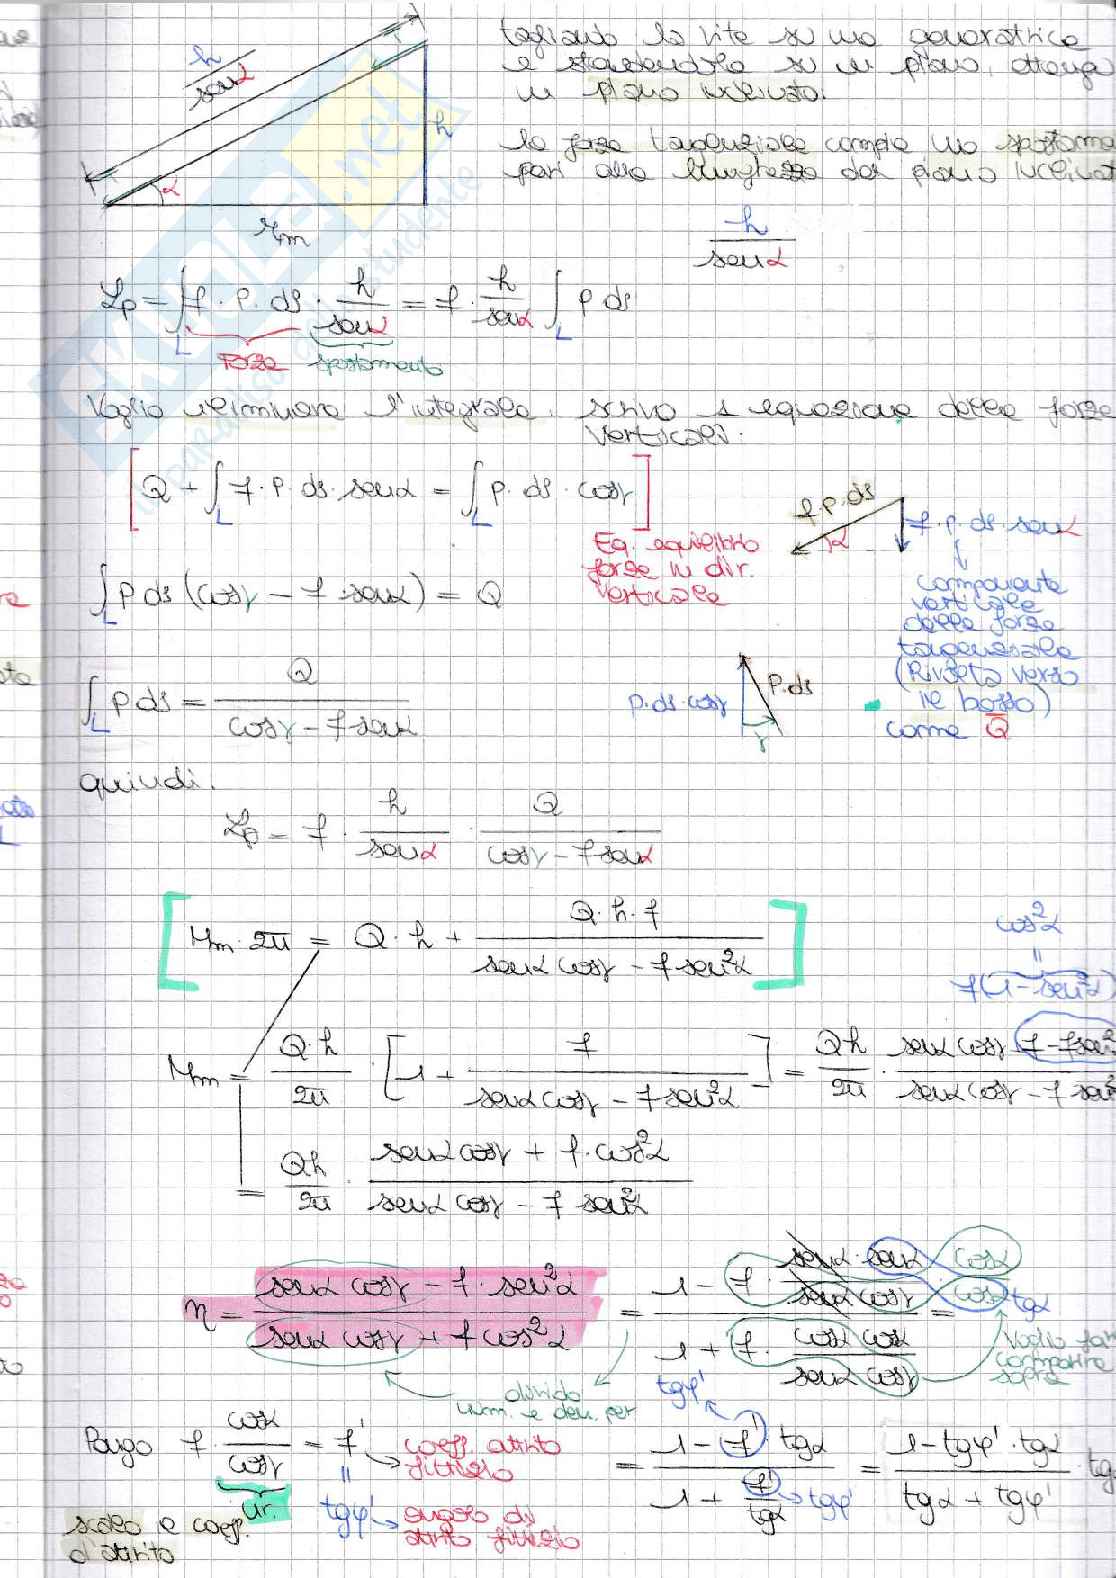 tagliando la vite su una generatrice
e stendendola su un piano, ottengo
un piano inclinato.
h
senα
h
α
la forza tangenziale compie uno spostame
pari alla lunghezza del piano inclinat
h
senα
Lp = ∫L f · p · ds · h/senα = f · h/senα ∫L p ds
Forza spostamento
Voglio eliminare l'integrale, scrivo 1 equazione delle forze
verticali:
[Q + ∫L f · p · ds · senα = ∫L p · ds · cosγ]
Eq. equilibrio
forze in dir.
verticale
f · p · ds
α
f · p · ds · senα
componente
verticale
della forza
tangenziale
(Rivolta verso
il basso)
come Q
∫L p ds (cosγ - f · senα) = Q
∫L p ds = Q / (cosγ - f senα)
p · ds · cosγ
p · ds
γ
quindi.
Lp = f · h/senα · Q/(cosγ - f senα)
[Mm · 2π = Q · h + Q · h · f / (senα cosγ - f sen²α)]
cos²α
=
f(1 - sen²α)
Mm = Q · h/2π · [1 + f/(senα cosγ - f sen²α)] = Qh/2π · (senα cosγ f - f sen²)/(senα cosγ - f sen²
= Qh/2π · (senα cosγ + f · cos²α)/(senα cosγ - f sen²α)
η = (senα cosγ - f · sen²α)/(senα cosγ + f cos²α) = (1 - f · senα · senα cosα/senα cosγ cosα)/(1 + f · cosα cosα/senα cosγ) =
tgα
Voglio far
comparire
sopra
divido
num. e den. per
tgφ'
Pongo f · cosα/cosγ = f' coeff. attrito
fittizio
= (1 - f' · tgα)/(1 + f'/tgα) = (1 - tgφ' · tgα)/(tgα + tgφ') · tg
tgφ'
tgφ' angolo di
attrito fittizio
e coeff.
d'attrito